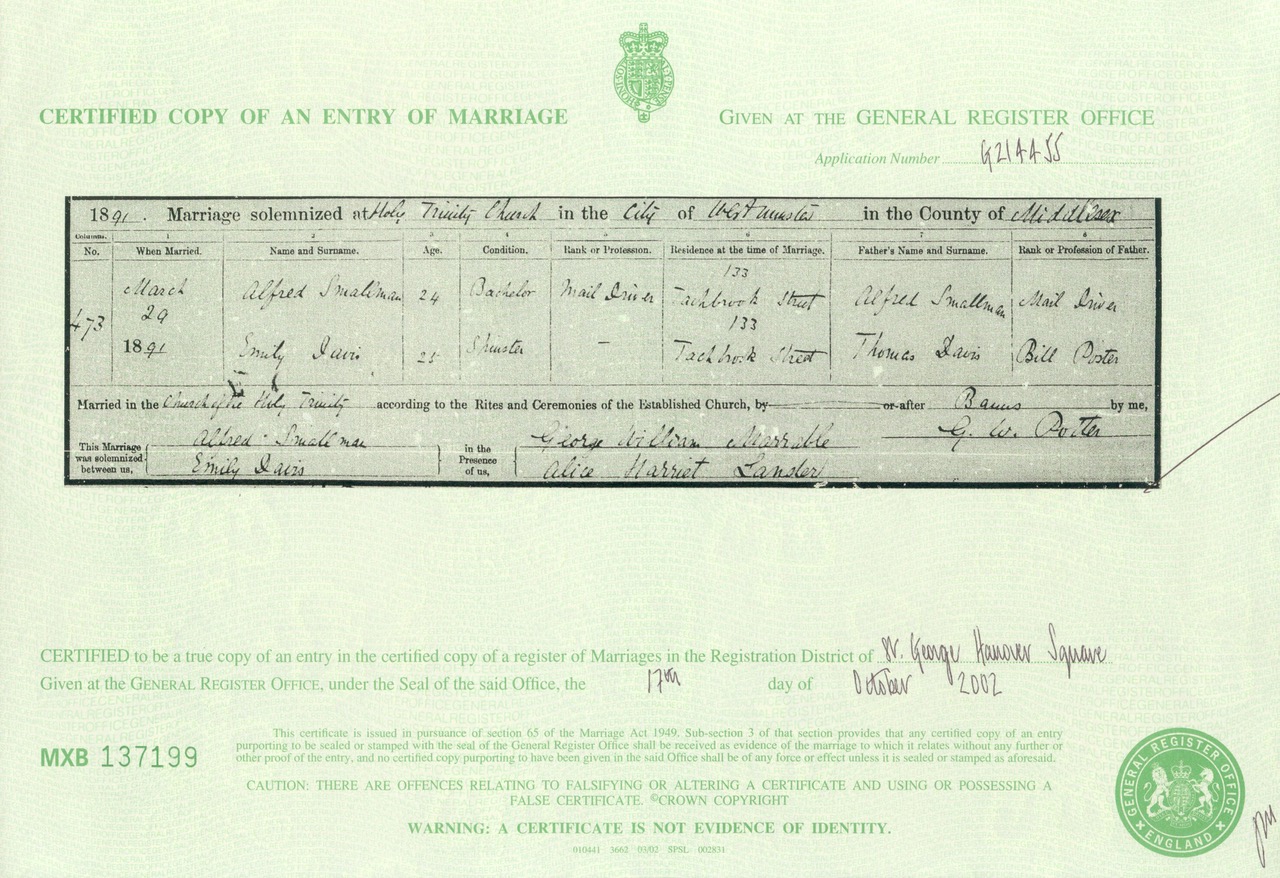 CERTIFIED COPY OF AN ENTRY OF MARRIAGE
GIVEN AT THE GENERAL REGISTER OFFICE
Application Number G214455
1891. Marriage solemnized at Holy Trinity Church in the City of Westminster in the County of Middlesex
Columns. 1 2 3 4 5 6 7 8
No. When Married. Name and Surname. Age. Condition. Rank or Profession. Residence at the time of Marriage. Father's Name and Surname. Rank or Profession of Father.
473
March 29 1891
Alfred Smallman 24 Bachelor Mail Driver 133 Tachbrook Street Alfred Smallman Mail Driver
Emily Davis 25 Spinster — 133 Tachbrook Street Thomas Davis Bill Poster
Married in the Church of the Holy Trinity according to the Rites and Ceremonies of the Established Church, by or after Banns by me,
G. W.
This Marriage was solemnized between us,
Alfred Smallman
Emily Davis
in the Presence of us,
George William Marrable
Alice Harriet
CERTIFIED to be a true copy of an entry in the certified copy of a register of Marriages in the Registration District of St. George Hanover Square
Given at the GENERAL REGISTER OFFICE, under the Seal of the said Office, the 17th day of October 2002
MXB 137199
This certificate is issued in pursuance of section 65 of the Marriage Act 1949. Sub-section 3 of that section provides that any certified copy of an entry
purporting to be sealed or stamped with the seal of the General Register Office shall be received as evidence of the marriage to which it relates without any further or
other proof of the entry, and no certified copy purporting to have been given in the said Office shall be of any force or effect unless it is sealed or stamped as aforesaid.
CAUTION: THERE ARE OFFENCES RELATING TO FALSIFYING OR ALTERING A CERTIFICATE AND USING OR POSSESSING A
FALSE CERTIFICATE. ©CROWN COPYRIGHT
WARNING: A CERTIFICATE IS NOT EVIDENCE OF IDENTITY.
010441 3662 03/02 SPSL 002831
GENERAL REGISTER OFFICE
ENGLAND